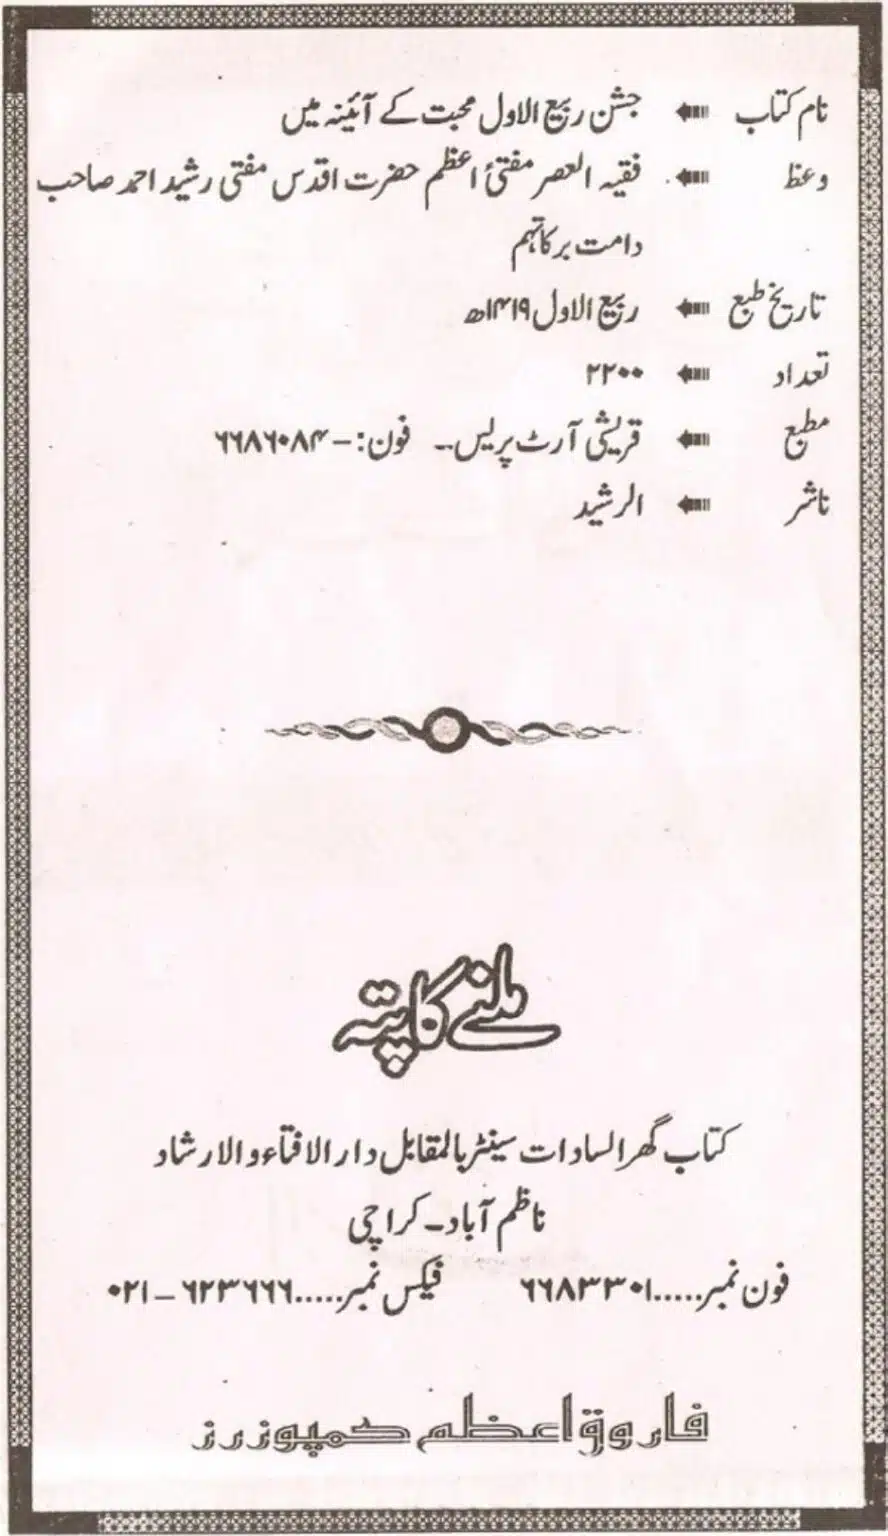 نام کتاب ⇚ جشن ربیع الاول محبت کے آئینہ میں
وعظ ⇚ فقیہ العصر مفتئ اعظم حضرت اقدس مفتی رشید احمد صاحب
دامت برکاتہم
تاریخ طبع ⇚ ربیع الاول ۱۴۱۹ھ
تعداد ⇚ ۲۲۰۰
مطبع ⇚ قریشی آرٹ پریس۔ فون:- ۶۶۸۶۰۸۴
ناشر ⇚ الرشید
ملنے کا پتہ
کتاب گھر السادات سینٹر بالمقابل دار الافتاء والارشاد
ناظم آباد۔ کراچی
فون نمبر.....۶۶۸۳۳۰۱ فیکس نمبر.....۶۲۳۶۶۶-۰۲۱
فاروق اعظم کمپوزرز